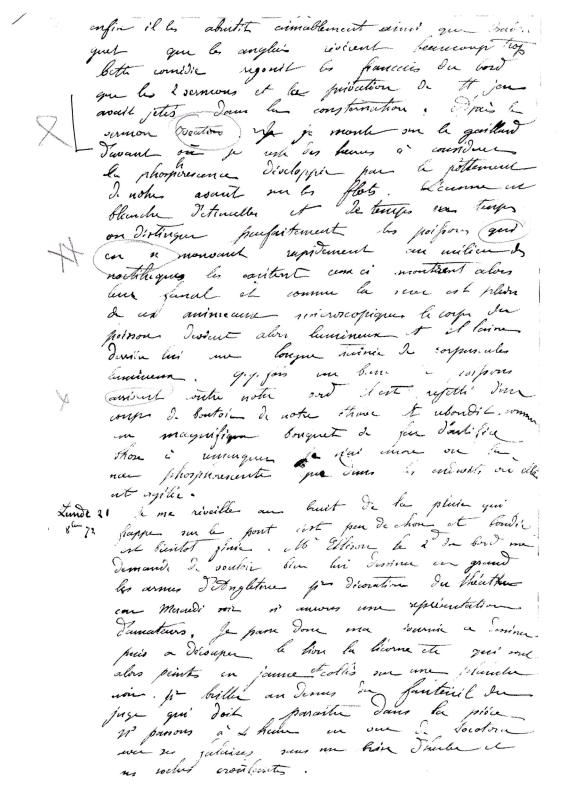 enfin il les abrutit aimablement ainsi que
que les anglais rivirent beaucoup trop
Cette comédie rejouit les français du bord
que les 2 sermons et la privation de tt jeu
avait jetés dans la consternation. Après le
sermon je monte sur le gaillard
d'avant où je reste des heures à considérer
la phosphorescence développée par le frottement
de notre avant sur les flots. L'écume est
blanche d'étincelles et de temps en temps
on distingue parfaitement les poissons qui
en se mouvant rapidement au milieu des
noctiluques les excitent ceux ci montrent alors
leur fanal et comme la mer est pleine
de ces animeaux microscopiques le corps du
poisson devient alors lumineux et il laisse
derrière lui une longue trainée de corpuscules
lumineux. qq.fois un banc de poissons
arrivent contre notre bord il est rejetté d'un
coup de boutoir de notre étrave et rebondit comme
un magnifique bouquet de feu d'artifice
chose à remarquer je n'ai encore vu la
mer phosphorescente que dans les endroits où elle
est agitée.
Lundi 21 Je me réveille au bruit de la pluie qui
8bre 72 frappe sur le pont c'est peu de chose et
est bientôt finie. Mr Ellison le 2d du bord me
demande de vouloir bien lui dessiner en grand
les armes d'Angleterre pr décoration du théâthre
car Mercredi soir ns aurons une représentation
d'amateurs. Je passe donc ma journée à dessiner
puis à découper le lion la licorne etc qui sont
alors peints en jaune et collés sur une planche
noire pr briller au dessus du fauteuil du
juge qui doit paraitre dans la pièce
Ns passons à 4 heures en vue de Socotora
avec ses falaises sans un brin d'herbe et
ses roches croulantes.